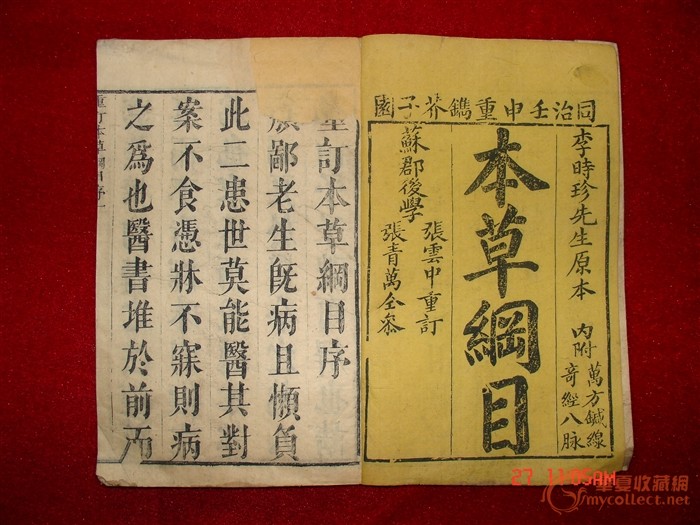 同治壬申重鐫芥子園
李時珍先生原本
內附
萬方鍼線
奇經八脉
本草綱目
張雲中重訂
蘇郡後學
張青萬仝叅
重訂本草綱目序
鄙老生旣病且懶負
此二患世莫能醫其對
案不食憑牀不寐則病
之爲也醫書堆於前而
重訂本草綱目序一
27 11:05AM
華夏收藏網
mycollect.net